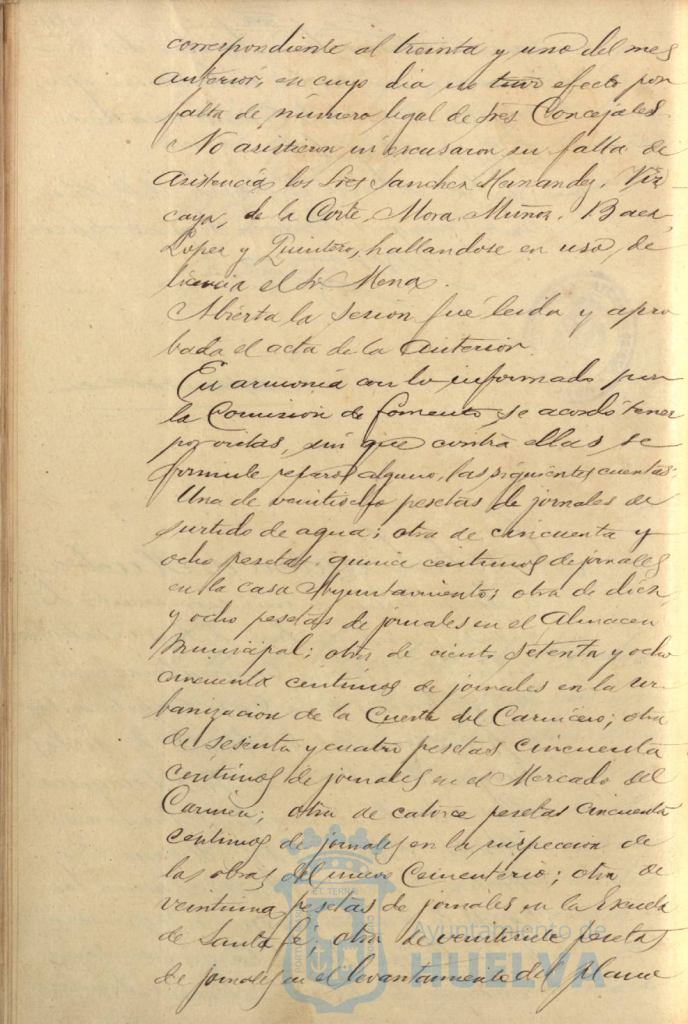 correspondiente al treinta y uno del mes
anterior, en cuyo dia no tuvo efecto por
falta de número legal de Sres Concejales.
No asistieron ni escusaron su falta de
asistencia los Sres Sanchez Hernandez, Viz
caya, de la Corte, Mora, Muñoz, Baez,
Lopez y Quintero, hallandose en uso de
licencia el Sr. Mena.
Abierta la sesion fué leida y apro
bada el acta de la anterior.
En armonia con lo informado por
la Comision de fomento, se acordó tener
por vistas, sin que contra ellas se
formule reparo alguno, las siguientes cuentas:
Una de veintiocho pesetas de jornales de
surtido de agua; otra de cincuenta y
ocho pesetas quince centimos de jornales
en la casa Ayuntamiento; otra de diez
y ocho pesetas de jornales en el Almacen
Municipal; otra de ciento setenta y ocho
cincuenta centimos de jornales en la ur
banizacion de la Cuesta del Carnicero; otra
de sesenta y cuatro pesetas cincuenta
centimos de jornales en el Mercado del
Carmen; otra de catorce pesetas cincuenta
centimos de jornales en la inspeccion de
las obras del nuevo Cementerio; otra de
veintiuna pesetas de jornales en la Escuela
de Santa Fé; otra de veintisiete pesetas
de jornales en el levantamiento del plano
Ayuntamiento de
HUELVA